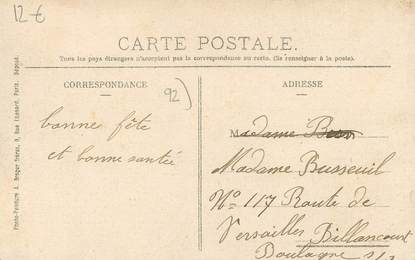 12€
CARTE POSTALE.
Tous les pays étrangers n'acceptent pas la correspondance au recto. (Se renseigner à la poste).
CORRESPONDANCE
ADRESSE
92)
bonne fête
et bonne santée
Madame
Madame Busseuil
N° 117 Route de
Versailles Billancourt
Boulogne s/
Photo-Peinture A. Breger Frères, 9, Rue Thénard, Paris. Déposé.